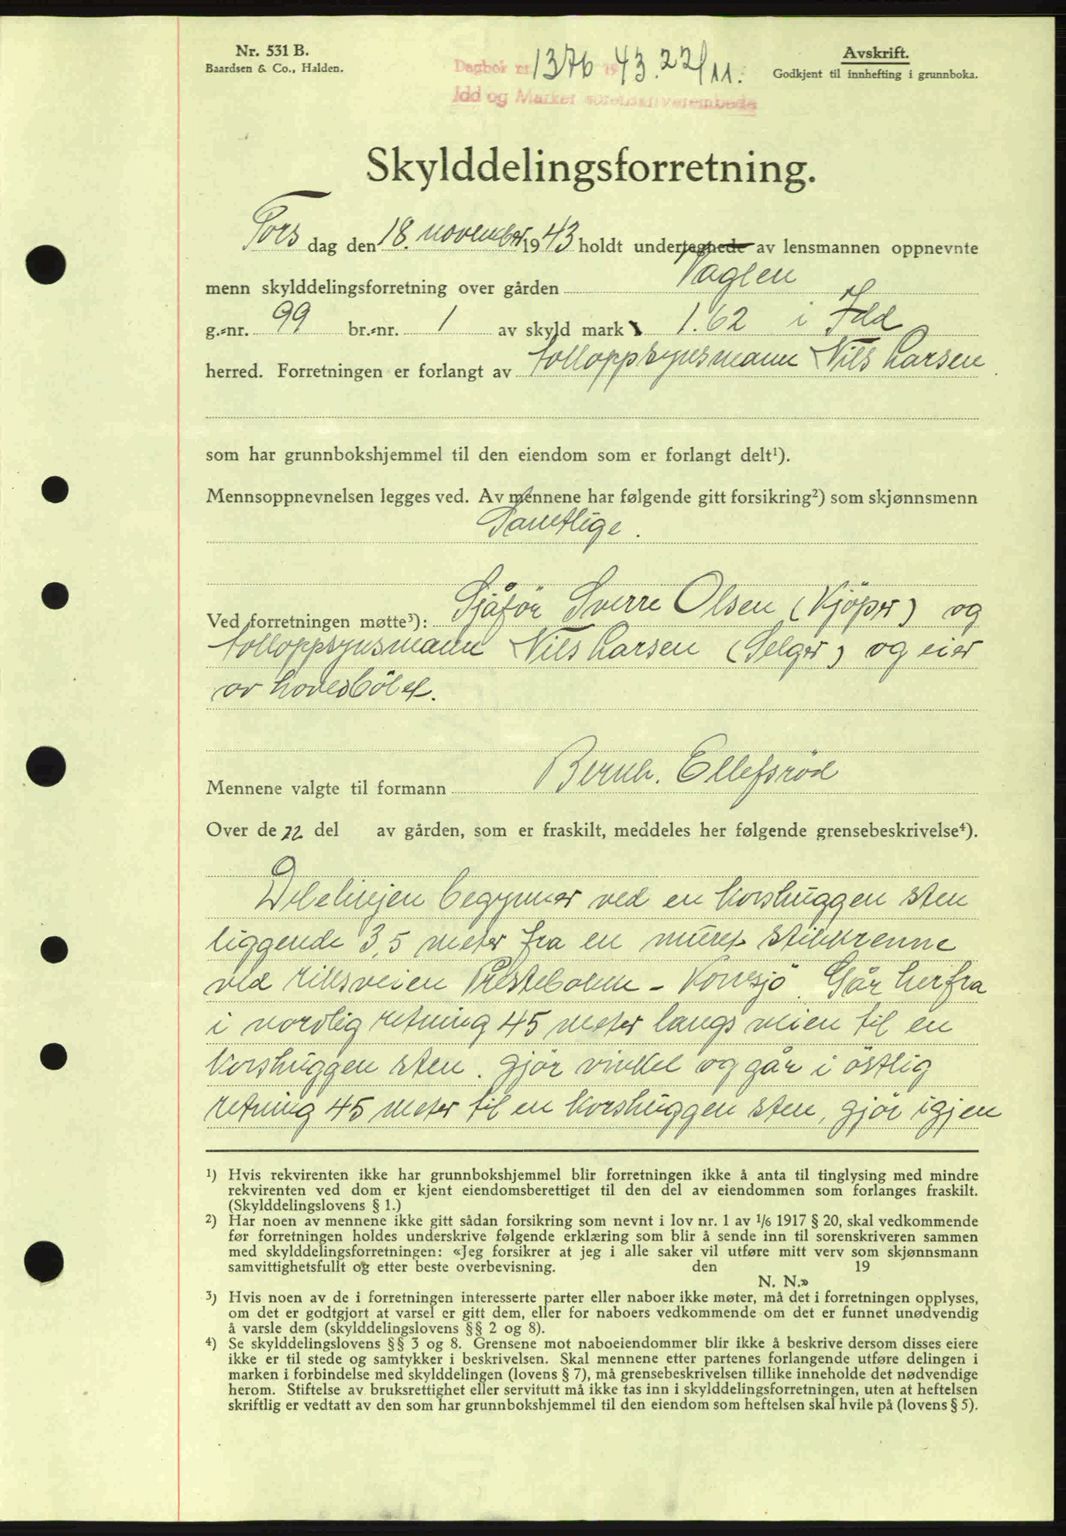 Nr. 531 B.
Baardsen & Co., Halden.
Avskrift.
Godkjent til innhefting i grunnboka.
Dagbok nr. 1376 1943. 22/11.
Idd og Marker sorenskriverembede
Skylddelingsforretning.
Torsdag den 18. november 1943 holdt undertegnede av lensmannen oppnevnte
menn skylddelingsforretning over gården Vaglen
g.-nr. 99 br.-nr. 1 av skyld mark 1.62 i Idd
herred. Forretningen er forlangt av tolloppsynsmann Nils Larsen
som har grunnbokshjemmel til den eiendom som er forlangt delt¹).
Mennsoppnevnelsen legges ved. Av mennene har følgende gitt forsikring²) som skjønnsmenn
Samtlige.
Ved forretningen møtte³): Sjåför Sverre Olsen (Kjöper) og
tolloppsynsmann Nils Larsen (Selger) og eier
av hovedbölet.
Mennene valgte til formann Bernh. Ellefsröd
Over de 22 del av gården, som er fraskilt, meddeles her følgende grensebeskrivelse⁴).
Delelinjen begynner ved en korshuggen sten
liggende 3,5 meter fra en muret stikkrenne
ved riksveien Prestebakke - Kornsjö. Går herfra
i nordlig retning 45 meter langs veien til en
korshuggen sten. gjör vinkel og går i östlig
retning 45 meter til en korshuggen sten, gjör igjen
¹) Hvis rekvirenten ikke har grunnbokshjemmel blir forretningen ikke å anta til tinglysing med mindre
rekvirenten ved dom er kjent eiendomsberettiget til den del av eiendommen som forlanges fraskilt.
(Skylddelingslovens § 1.)
²) Har noen av mennene ikke gitt sådan forsikring som nevnt i lov nr. 1 av 1/6 1917 § 20, skal vedkommende
før forretningen holdes underskrive følgende erklæring som blir å sende inn til sorenskriveren sammen
med skylddelingsforretningen: «Jeg forsikrer at jeg i alle saker vil utføre mitt verv som skjønnsmann
samvittighetsfullt og etter beste overbevisning. den 19
N. N.»
³) Hvis noen av de i forretningen interesserte parter eller naboer ikke møter, må det i forretningen opplyses,
om det er godtgjort at varsel er gitt dem, eller for naboers vedkommende om det er funnet unødvendig
å varsle dem (skylddelingslovens §§ 2 og 8).
⁴) Se skylddelingslovens §§ 3 og 8. Grensene mot naboeiendommer blir ikke å beskrive dersom disses eiere
ikke er til stede og samtykker i beskrivelsen. Skal mennene etter partenes forlangende utføre delingen i
marken i forbindelse med skylddelingen (lovens § 7), må grensebeskrivelsen tillike inneholde det nødvendige
herom. Stiftelse av bruksrettighet eller servitutt må ikke tas inn i skylddelingsforretningen, uten at heftelsen
skriftlig er vedtatt av den som har grunnbokshjemmel til den eiendom som heftelsen skal hvile på (lovens § 5).